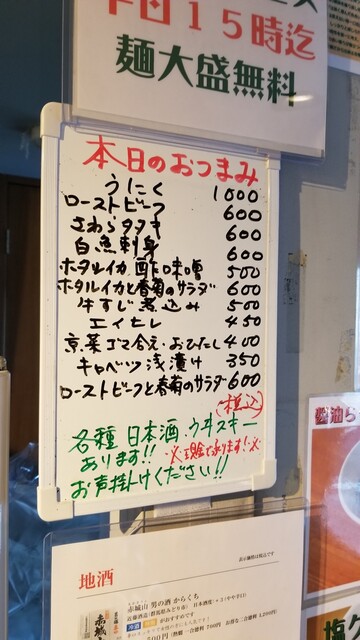 平日15時迄
麺大盛無料
本日のおつまみ
うにく 1000
ローストビーフ 600
さわらタタキ 600
白魚刺身 600
ホタルイカ酢味噌 500
ホタルイカと春菊のサラダ 600
牛すじ煮込み 500
エイヒレ 450
京菜ゴマ合え・おひたし 400
キャベツ浅漬け 350
ローストビーフと春菊のサラダ 600
(税込)
各種日本酒・ウヰスキー
あります!!
お声掛けください!!
地酒
表示価格は税込です
赤城山 男の酒 からくち
近藤酒造(群馬県みどり市)
冷酒